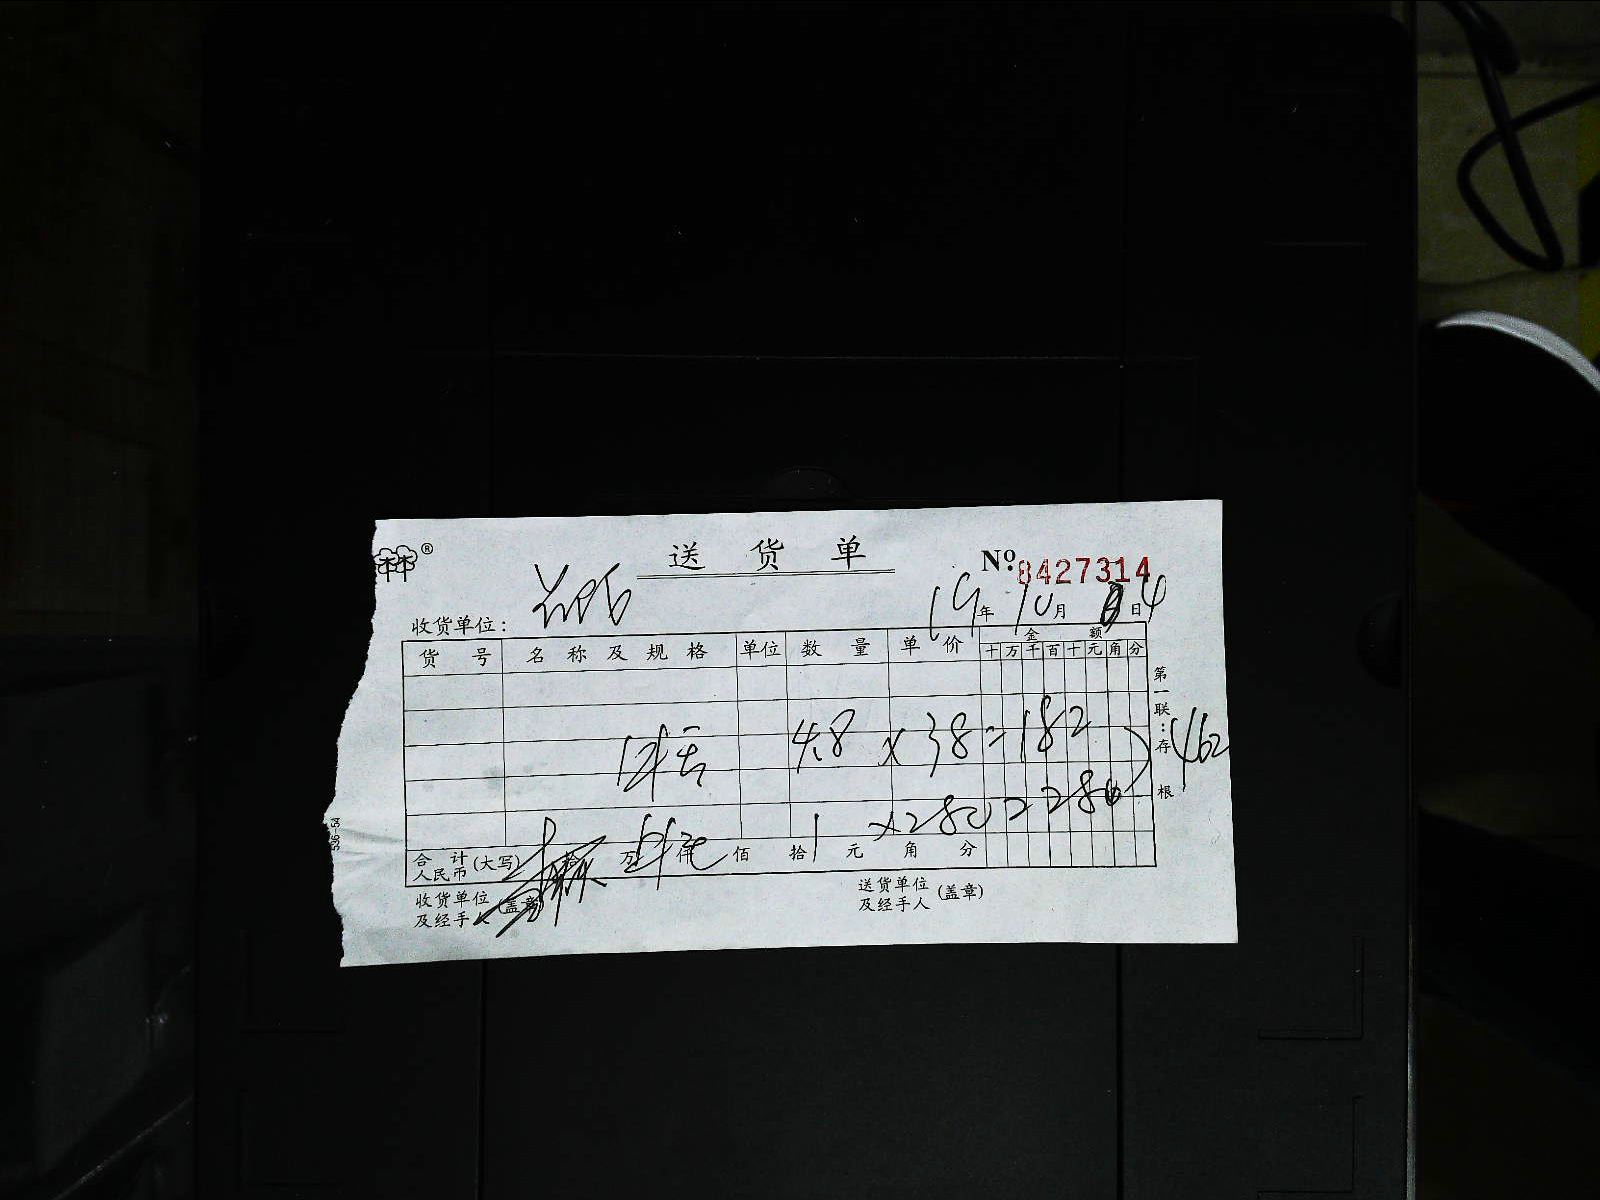 ®
送 货 单
№ 8427314
收货单位：
19年10月 日4
货 号 名 称 及 规 格 单位 数 量 单 价 金 额
十 万 千 百 十 元 角 分
4.8 × 38 = 182
1 × 280 = 280
462
合 计 人民币 (大写) 拾 万 仟 佰 拾 元 角 分
收货单位及经手人 (盖章)
送货单位及经手人 (盖章)
第一联：存根